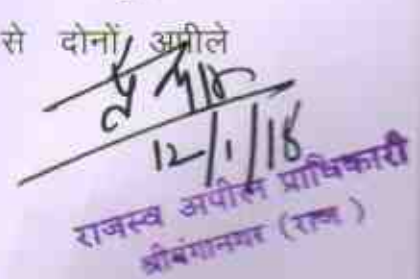 से दोनों अपीले
12/1/18
राजस्व अपील प्राधिकारी
श्रीगंगानगर (राज)